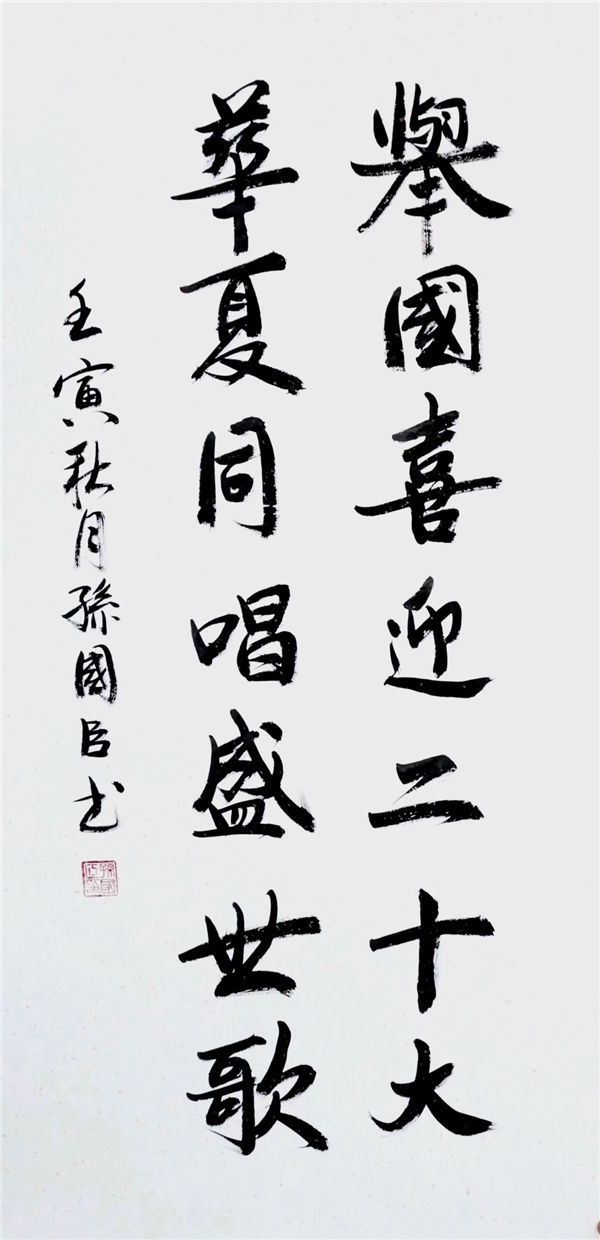 舉國喜迎二十大
華夏同唱盛世歌
壬寅秋月孫國臣书